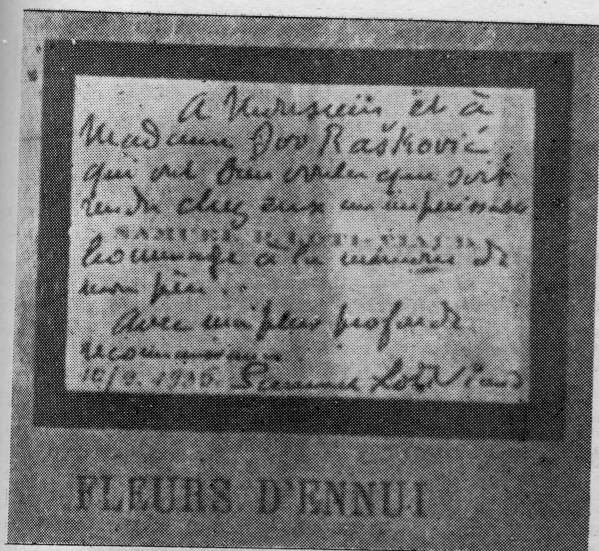 A Monsieur et à
Madame Jovo Rašković
qui ont bien voulu que soit
rendu chez eux un impérissable
SAMUEL P. LOTI-VIAUD
hommage à la mémoire de
mon père.
Avec ma plus profonde
reconnaissance
10/9. 1936. Samuel Loti Viaud
FLEURS D'ENNUI